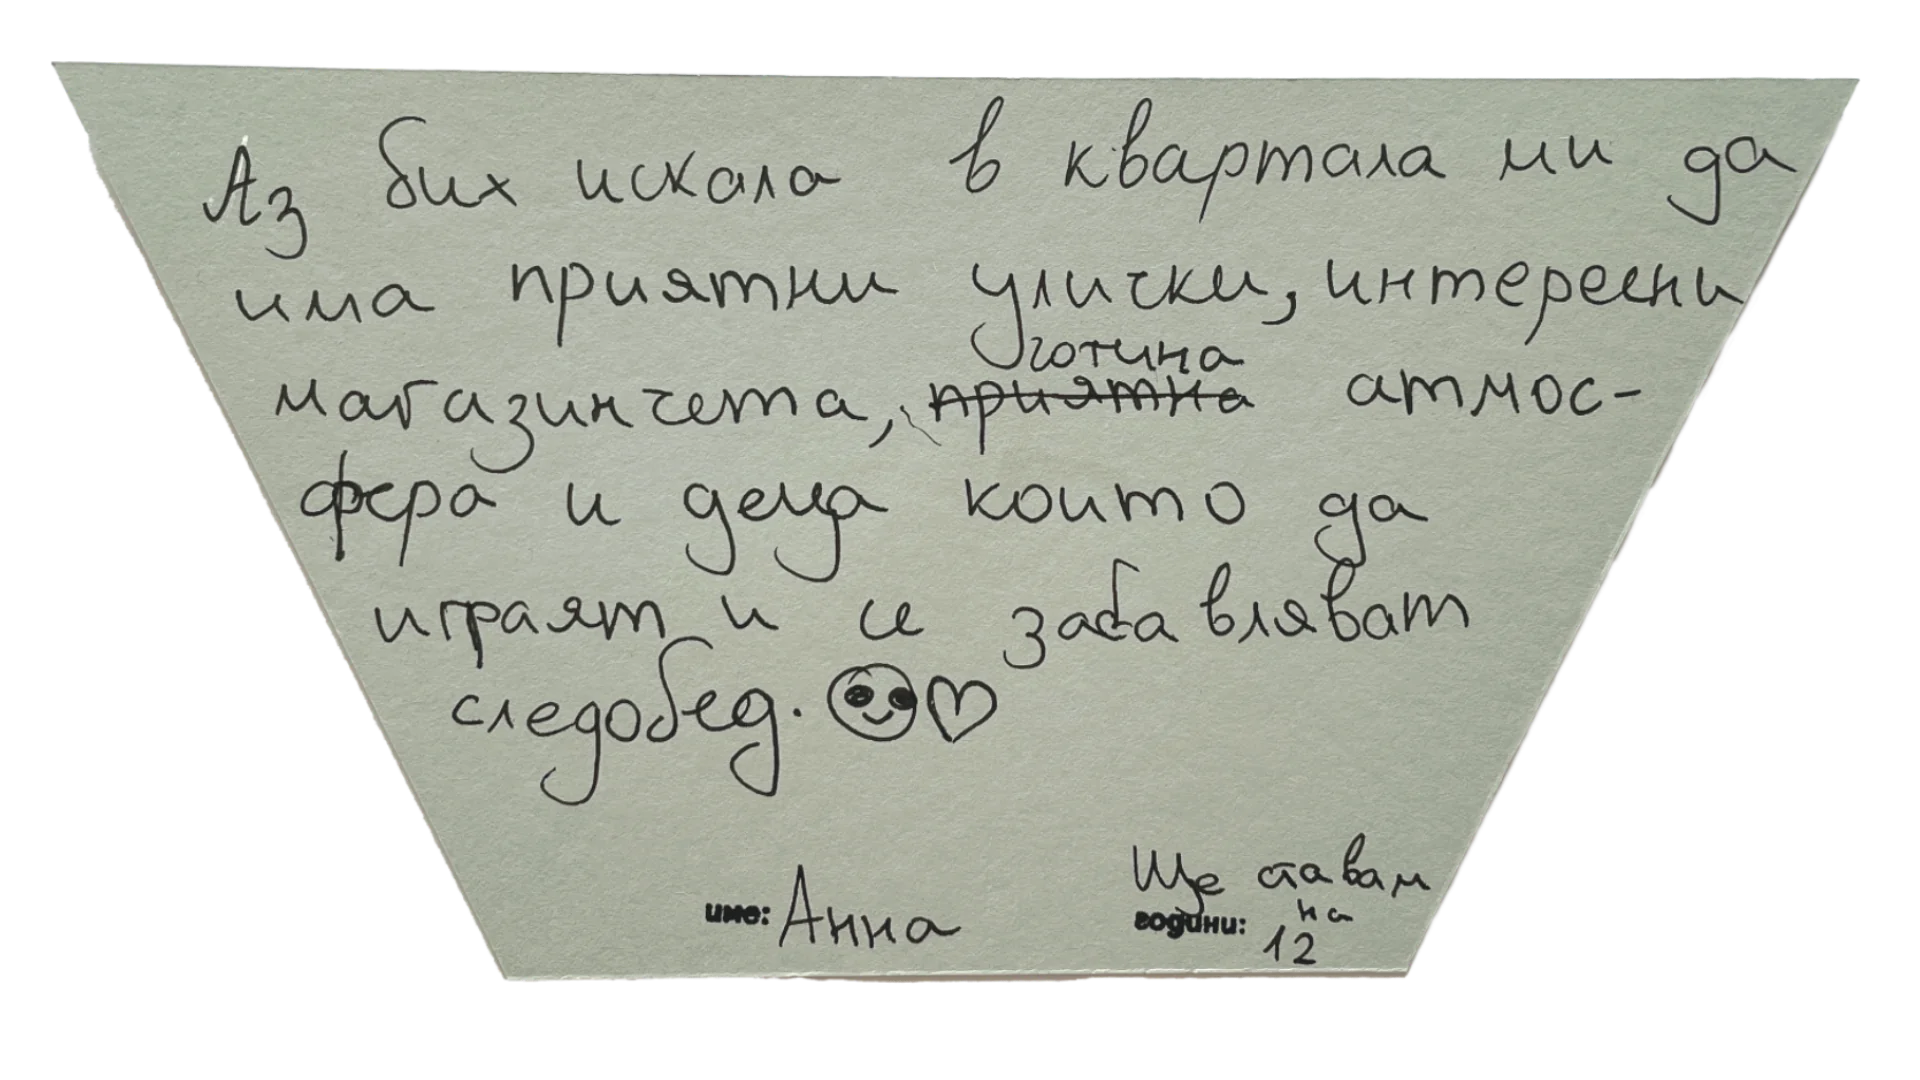 Аз бих искала в квартала ми да
има приятни улички, интересни
готина
магазинчета, приятна атмос-
фера и деца които да
играят и се забавляват
следобед.
Ще ставам
на
име: Анна години: 12